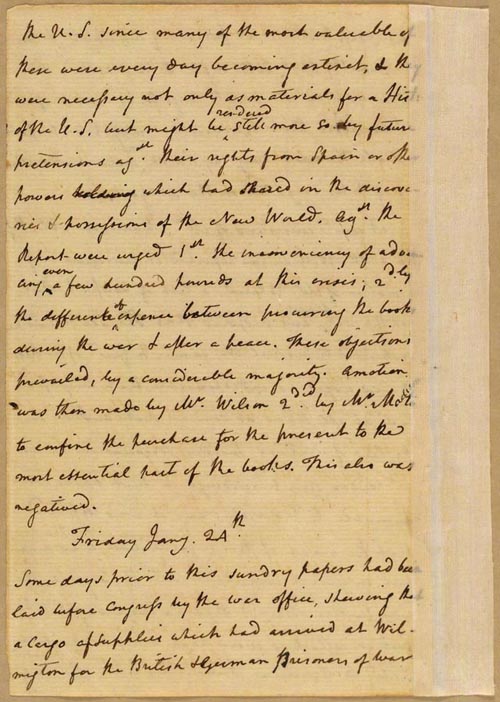 the U.S. since many of the most valuable of
these were every day becoming extinct, & they
were necessary not only as materials for a Hist.
of the U.S. but might be rendered still more so by future
pretensions agst. their rights from Spain or other
powers which had shared in the discove
ries & possessions of the New World. Agst. the
Report were urged 1st. the inconveniency of advan
cing even a few hundred pounds at this crisis; 2d. by
the difference of expence between procuring the books
during the war & after a peace. These objections
prevailed, by a considerable majority. A motion
was then made by Mr. Wilson 2ded. by Mr.
to confine the purchase for the present to the
most essential part of the books. This also was
negatived.
Friday Jany. 24th.
Some days prior to this sundry papers had been
laid before Congress by the war office, shewing that
a Cargo of Supplies which had arrived at Wil-
mington for the British & German Prisoners of War